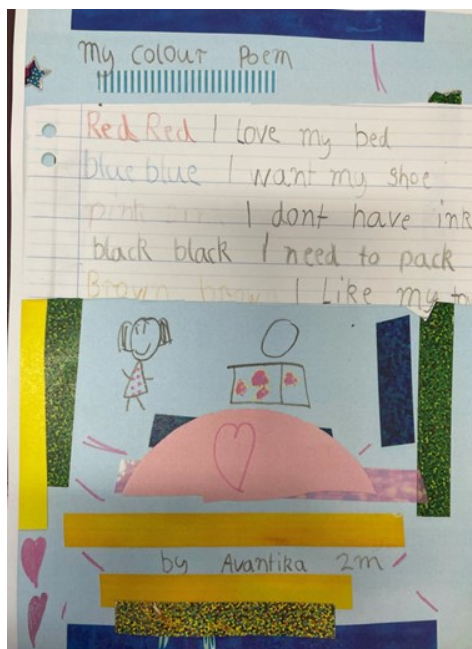 My colour Poem
Red Red I love my bed
blue blue I want my shoe
pink pink I dont have ink
black black I need to pack
Brown brown I Like my
by Avantika 2m